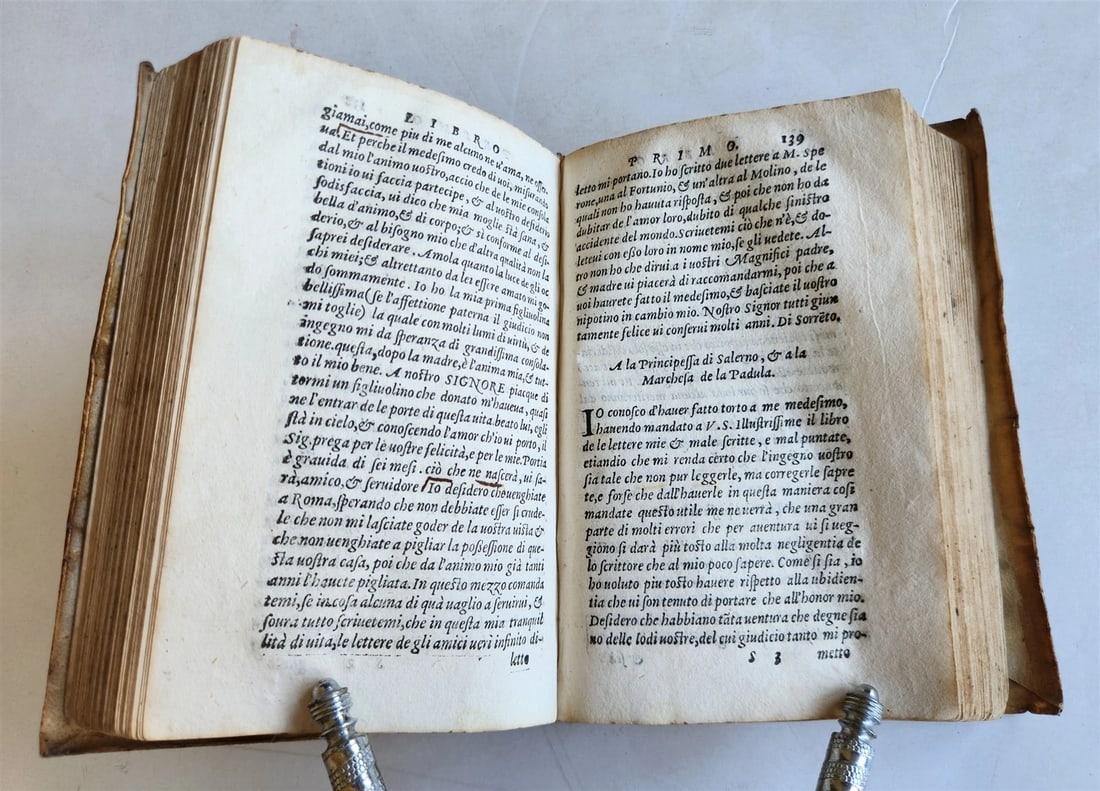 LIBRO
giamai, come piu di me alcuno ne u'ama, ne esso-
ua. Et perche il medesimo credo di uoi, misurando
dal mio l'animo uostro, accio che de le mie consola
tioni io ui faccia partecipe, & al uostro desiderio
sodisfaccia, ui dico che mia moglie stà sana, &
bella d'animo, & di corpo; & sì conforme al desi-
derio, & al bisogno mio che d'altra qualità non la
saprei desiderare. Amola quanto la luce de gli oc
chi miei; & altrettanto da lei essere amato mi go-
do sommamente. Io ho la mia prima figliuolina
bellissima (se l'affettione paterna il giudicio non
mi toglie) la quale con molti lumi di uirtù, & de
ingegno mi da speranza di grandissima consola-
tione. questa, dopo la madre, è l'anima mia, & tut-
to il mio bene. A nostro SIGNORE piacque di
tormi un figliuolino che donato m'haueua, quasi
ne l'entrar de le porte di questa uita. beato lui, egli
stà in cielo, & conoscendo l'amor ch'io ui porto, il
Sig. prega per le uostre felicità, e per le mie. Portia
è grauida di sei mesi. ciò che ne nascerà, ui sa-
rà, amico, & seruidore Io desidero che uenghiate
a Roma, sperando che non debbiate esser sì crude-
le che non mi lasciate goder de la uostra uista &
che non uenghiate a pigliar la possessione di que-
sta uostra casa, poi che da l'animo mio già tanti
anni l'hauete pigliata. In questo mezzo comanda
temi, se in cosa alcuna di quà uaglio a seruirui, &
soura tutto, scriuetemi, chè in questa mia tranquil
lità di uita, le lettere de gli amici ueri infinito di-
letto
PRIMO. 139
letto mi portano. Io ho scritto due lettere a M. Spe
rone, una al Fortunio, & un'altra al Molino, de le
quali non ho hauuta risposta, & poi che non ho da
dubitar de l'amor loro, dubito di qualche sinistro
accidente del mondo. Scriuetemi ciò che n'è, & do-
leteui con esso loro in nome mio, se gli uedete. Al-
tro non ho che dirui. a i uostri Magnifici padre,
& madre ui piacerà di raccomandarmi, poi che a
uoi haurete fatto il medesimo, & basciate il uostro
nipotino in cambio mio. Nostro Signor tutti giun
tamente felice ui conserui molti anni. Di Sorrēto.
A la Principessa di Salerno, & a la
Marchesa de la Padula.
IO conosco d'hauer fatto torto a me medesimo,
hauendo mandato a V. S. Illustrissime il libro
de le lettere mie & male scritte, e mal puntate,
etiandio che mi renda certo che l'ingegno uostro
sia tale che non pur leggerle, ma corregerle sapre
te, e forse che dall'hauerle in questa maniera così
mandate questo utile me ne uerrà, che una gran
parte di molti errori che per auentura ui si ueg-
giono si darà più tosto alla molta negligentia de
lo scrittore che al mio poco sapere. Come si sia, io
ho uoluto piu tosto hauere rispetto alla ubidien-
tia che ui son tenuto di portare che all'honor mio.
Desidero che habbiano tāta uentura che degne sia
no delle lodi uostre, del cui giudicio tanto mi pro-
S 3 metto